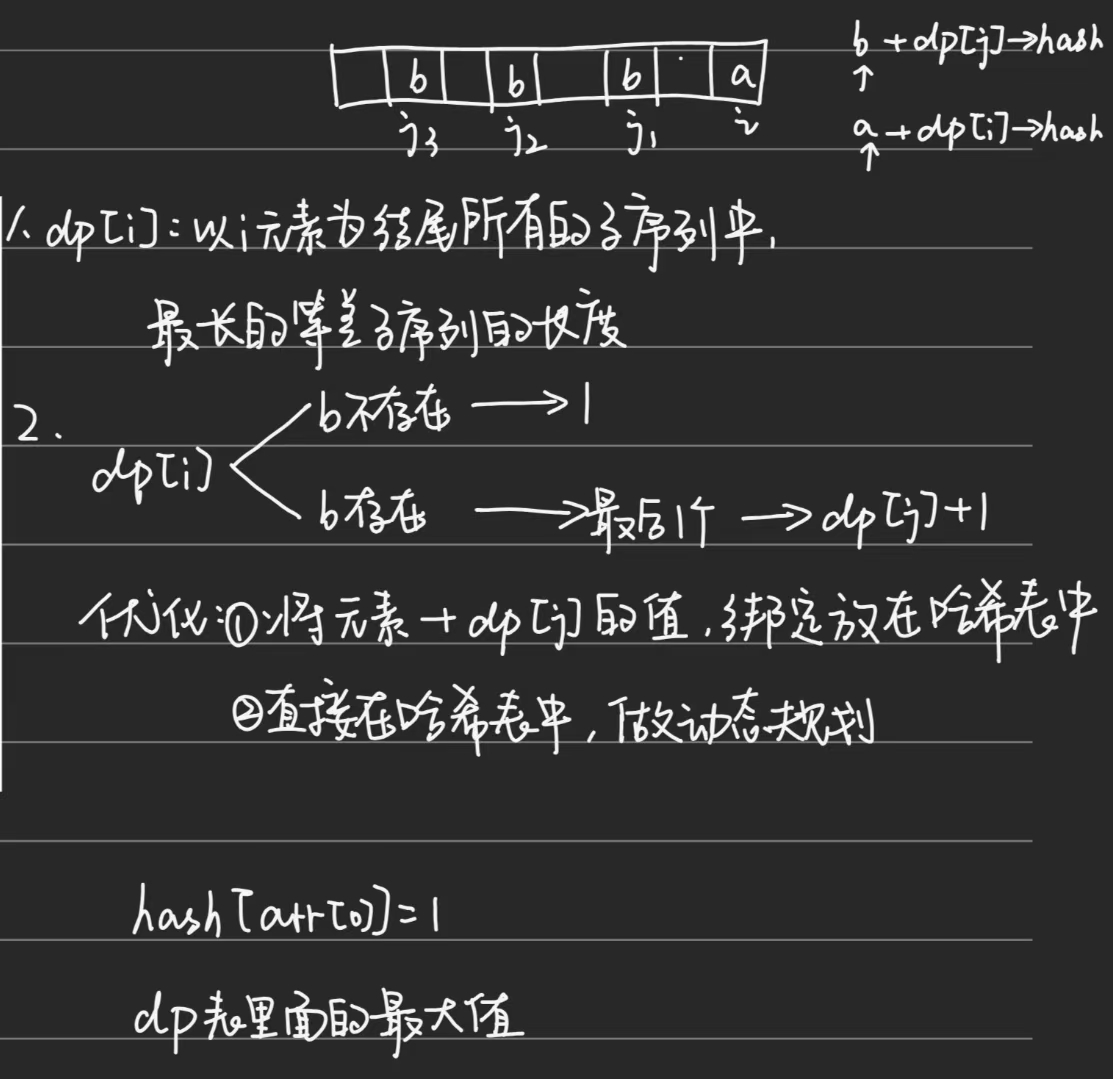 b b b a
j₃ j₂ j₁ i
b + dp[j]→hash
a + dp[i]→hash
1. dp[i]:以i元素为结尾所有的子序列中,
最长的等差子序列的长度
2.
dp[i]
b不存在 → 1
b存在 → 最后1个 → dp[j]+1
优化:①将元素 + dp[j]的值,绑定放在哈希表中
②直接在哈希表中,做动态规划
hash[arr[0]]=1
dp表里面的最大值